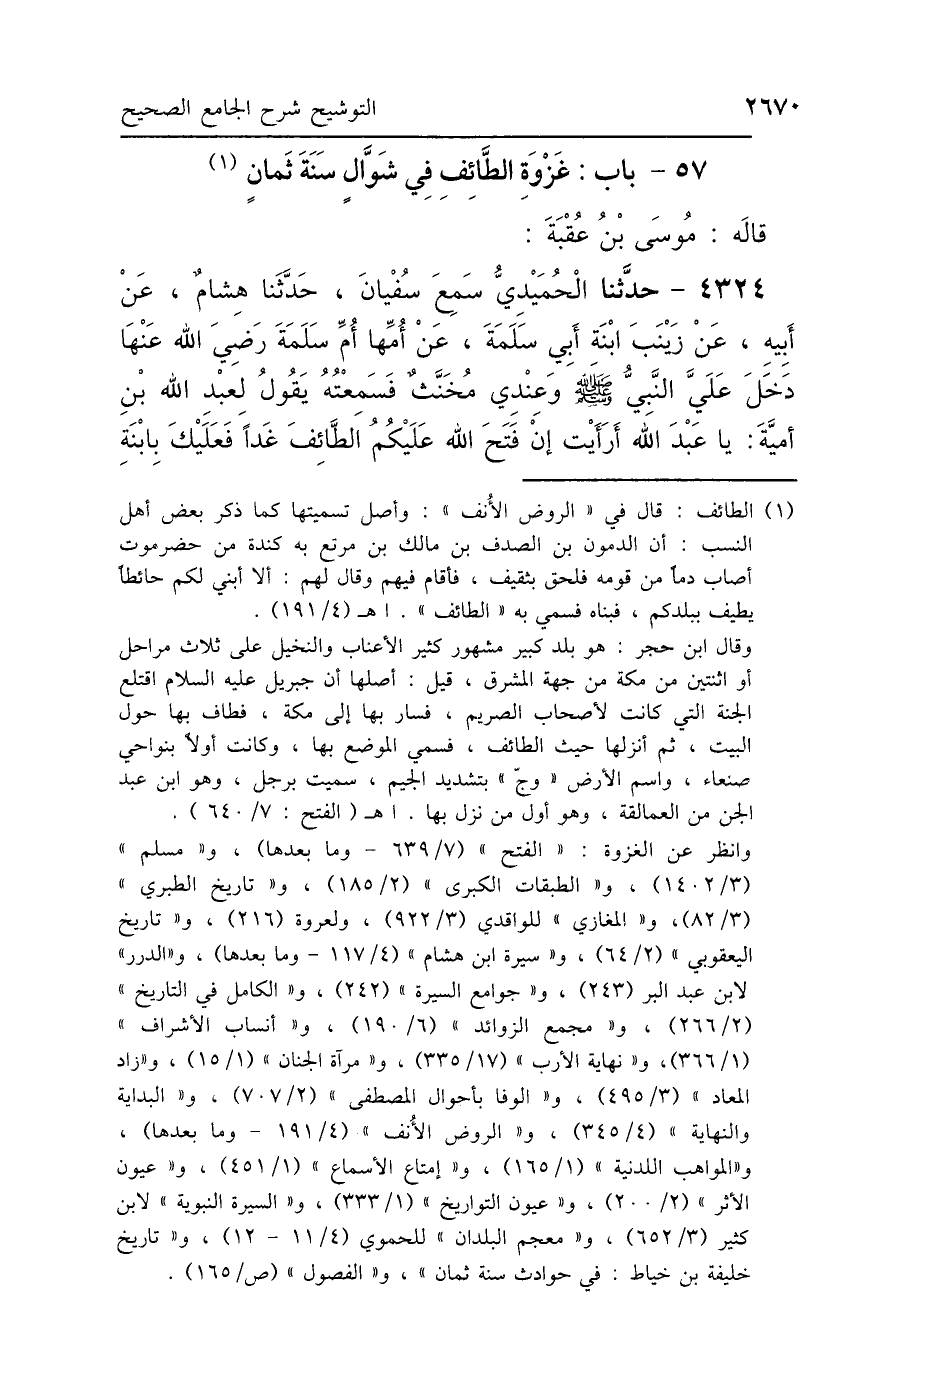 ٢٦٧٠ التوشيح شرح الجامع الصحيح
٥٧ - باب : غَزْوَةِ الطَّائِفِ فِي شَوَّالٍ سَنَةَ ثَمانٍ (١)
قالَه : مُوسَى بْنُ عُقْبَةَ :
٤٣٢٤ - حدَّثنا الْحُمَيْدِيُّ سَمِعَ سُفْيانَ ، حَدَّثَنا هِشامٌ ، عَنْ
أَبِيهِ ، عَنْ زَيْنَبَ ابْنَةِ أَبِي سَلَمَةَ ، عَنْ أُمِّها أُمِّ سَلَمَةَ رَضِيَ الله عَنْهَا
دَخَلَ عَلَيَّ النَّبِيُّ ﷺ وَعِنْدِي مُخَنَّثٌ فَسَمِعْتُهُ يَقُولُ لِعبْدِ الله بْنِ
أميَّةَ: يا عَبْدَ الله أَرَأَيْت إنْ فَتَحَ الله عَلَيْكُمُ الطَّائِفَ غَداً فَعَلَيْكَ بِابْنَةِ
(١) الطائف : قال في « الروض الأُنف » : وأصل تسميتها كما ذكر بعض أهل
النسب : أن الدمون بن الصدف بن مالك بن مرتع به كندة من حضرموت
أصاب دماً من قومه فلحق بثقيف ، فأقام فيهم وقال لهم : ألا أبني لكم حائطاً
يطيف ببلدكم ، فبناه فسمي به « الطائف » . ا هـ (١٩١/٤) .
وقال ابن حجر : هو بلد كبير مشهور كثير الأعناب والنخيل على ثلاث مراحل
أو اثنتين من مكة من جهة المشرق ، قيل : أصلها أن جبريل عليه السلام اقتلع
الجنة التي كانت لأصحاب الصريم ، فسار بها إلى مكة ، فطاف بها حول
البيت ، ثم أنزلها حيث الطائف ، فسمي الموضع بها ، وكانت أولاً بنواحي
صنعاء ، واسم الأرض « وجّ » بتشديد الجيم ، سميت برجل ، وهو ابن عبد
الجن من العمالقة ، وهو أول من نزل بها . ا هـ ( الفتح : ٦٤٠/٧ ) .
وانظر عن الغزوة : « الفتح » (٦٣٩/٧ - وما بعدها) ، و« مسلم »
(١٤٠٢/٣) ، و« الطبقات الكبرى » (١٨٥/٢) ، و« تاريخ الطبري »
(٨٢/٣)، و« المغازي » للواقدي (٩٢٢/٣) ، ولعروة (٢١٦) ، و« تاريخ
اليعقوبي » (٦٤/٢) ، و« سيرة ابن هشام » (١١٧/٤ - وما بعدها) ، و«الدرر»
لابن عبد البر (٢٤٣) ، و« جوامع السيرة » (٢٤٢) ، و« الكامل في التاريخ »
(٢٦٦/٢) ، و« مجمع الزوائد » (١٩٠/٦) ، و« أنساب الأشراف »
(٣٦٦/١)، و« نهاية الأرب » (٣٣٥/١٧) ، و« مرآة الجنان » (١٥/١) ، و«زاد
المعاد » (٤٩٥/٣) ، و« الوفا بأحوال المصطفى » (٧٠٧/٢) ، و« البداية
والنهاية » (٣٤٥/٤) ، و« الروض الأُنف » (١٩١/٤ - وما بعدها) ،
و«المواهب اللدنية » (١٦٥/١) ، و« إمتاع الأسماع » (٤٥١/١) ، و« عيون
الأثر » (٢٠٠/٢) ، و« عيون التواريخ » (٣٣٣/١) ، و« السيرة النبوية » لابن
كثير (٦٥٢/٣) ، و« معجم البلدان » للحموي (١١/٤ - ١٢) ، و« تاريخ
خليفة بن خياط : في حوادث سنة ثمان » ، و« الفصول » (ص/١٦٥) .